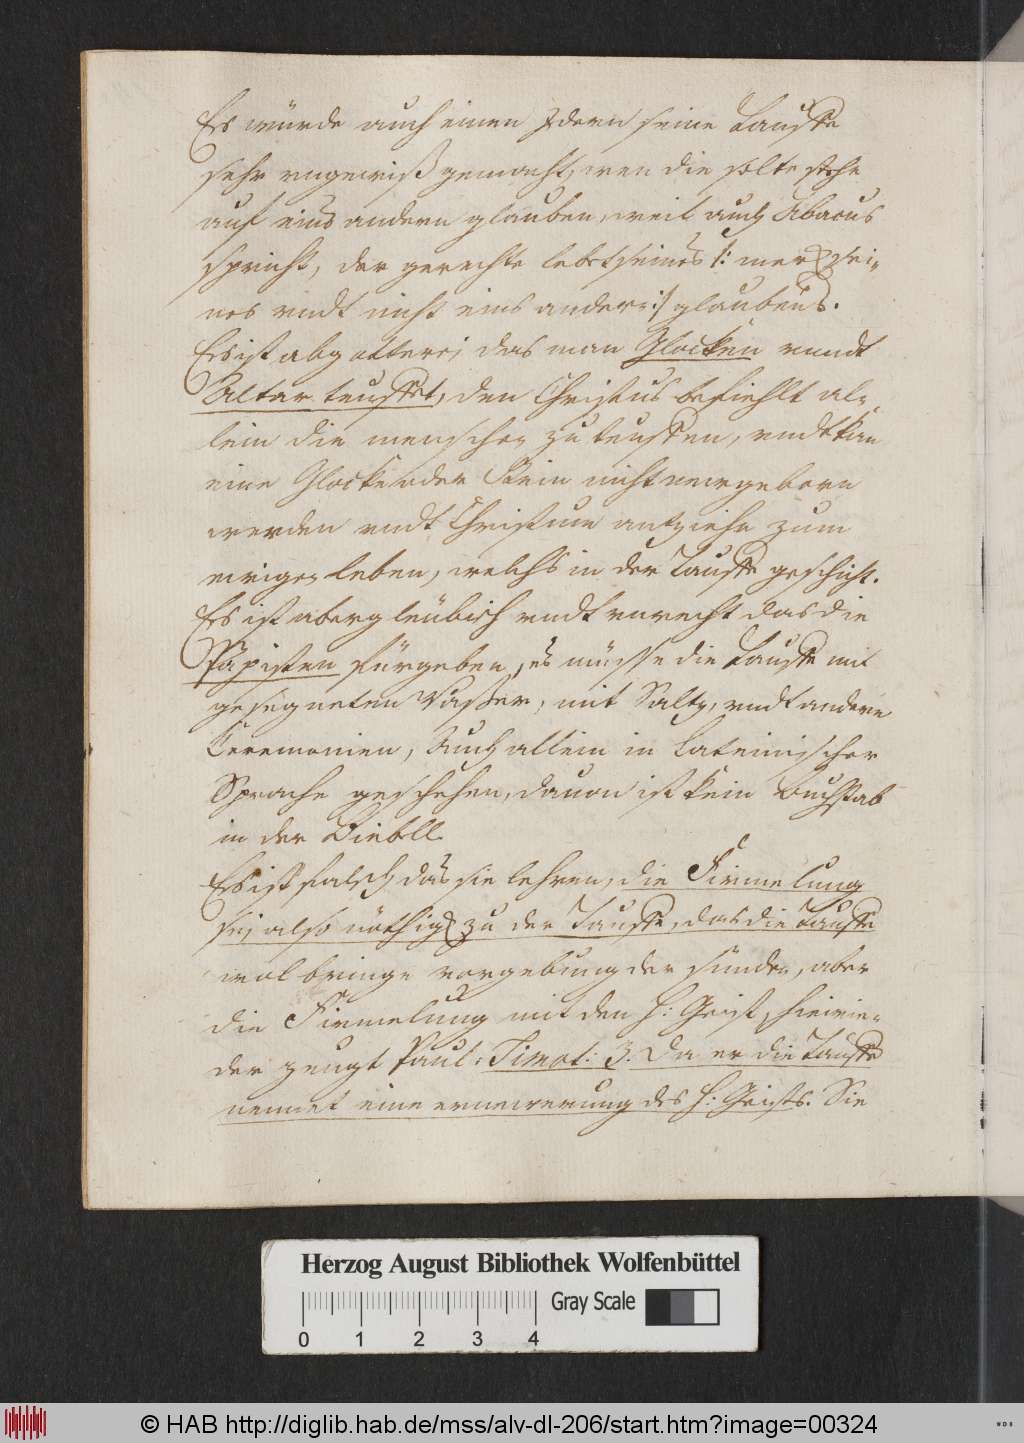 Es würde auch einen Jdern seine Tauffe
sehr vngewiß gemacht, wen die solte stehe
auf eins andern glauben, weil auch Abacus
spricht, der gerechte lebet seines /: merck sei-
nes vndt nicht eins andern :/ glaubens.
Es ist abgötterei das man Glocken vnndt
Altar teuffet, den Christus befiehlt al-
lein die menschen zu teuffen, vndt kan
eine Glocke oder Stein nicht neugeborn
werden vndt Christum anziehe zum
ewigen leben, welchs in der Tauffe geschicht.
Es ist abergleubisch vndt vnrecht das die
Päpisten fürgeben, es müsse die Tauffe mit
gesegneten Waßer, mit Saltz, vndt andere
Ceremonien, Auch allein in Lateinischer
Sprache geschehen, dauon ist kein Buchstab
in der Biebll.
Es ist falsch das sie lehren, die Firmelung
sej also nöthig zu der Tauffe, das die Tauffe
wol bringe vorgebung der sünden, aber
die Firmelung mit den H: Geist, hierwie-
der zeugt Paul: Timot: 3. Da er die Tauffe
nennet eine ernewerung des H: Geists. Sie
Herzog August Bibliothek Wolfenbüttel
0 1 2 3 4 Gray Scale
© HAB http://diglib.hab.de/mss/alv-dl-206/start.htm?image=00324